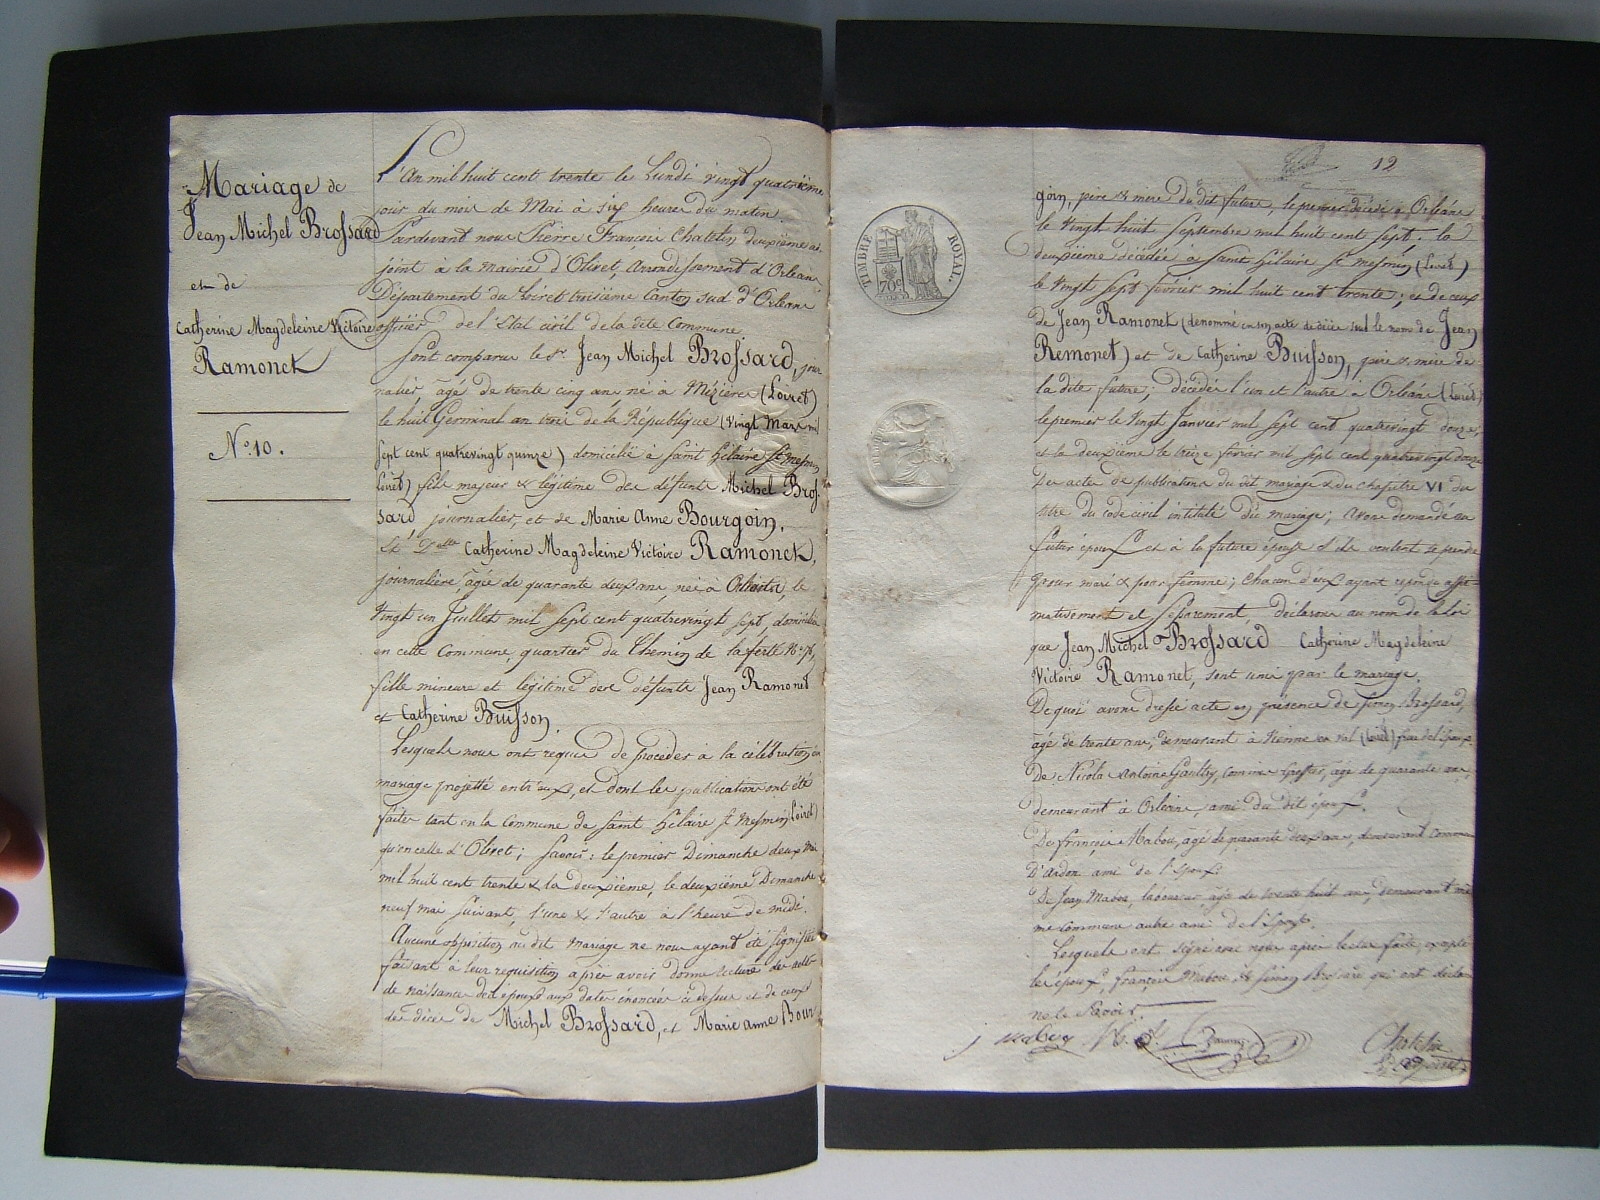 Mariage de
Jean Michel Brossard
et de
Catherine Magdeleine Victoire
Ramonet
N° 10.
L'An mil huit cent trente le Lundi vingt quatrième
jour du mois de Mai à six heures du matin
Pardevant nous Pierre François Chatelin deuxième ad-
joint à la mairie d'Olivet, arrondissement d'Orléans
Département du Loiret troisième Canton sud d'Orléans
officier de l'Etat civil de la dite Commune
Sont comparus le Sr. Jean Michel Brossard, jour
nalier, âgé de trente cinq ans né à Mézières (Loiret)
le huit Germinal an trois de la République (vingt Mars mil
sept cent quatrevingt quinze) domicilié à Saint hilaire St mesmin
Loiret) fils majeur & légitime des défunts Michel Bros
sard journalier, et de Marie Anne Bourgoin.
Et Delle Catherine Magdeleine Victoire Ramonet,
journalière, âgée de quarante deux ans, née à Orléans, le
vingt un Juillet mil sept cent quatrevingt sept, domiciliée
en cette Commune, quartier du Chemin de la ferté N° 76,
fille mineure et légitime des défunts Jean Ramonet
et Catherine Buisson
Lesquels nous ont requis de procéder à la célébration du
mariage projetté entr'eux, et dont les publications ont été
faites tant en la Commune de Saint hilaire St Mesmin (Loiret)
qu'en celle d'Olivet; Savoir: le premier Dimanche deux Mai
mil huit cent trente & la deuxième, le deuxième Dimanche
neuf mai suivant, l'une & l'autre à l'heure de midi.
Aucune opposition au dit mariage ne nous ayant été signifiée
faisant à leur requisition après avoir donné lecture des actes
de naissance des époux aux dates énoncées ci dessus et de ceux
des décès de Michel Brossard, et Marie anne Bour
12
goin, père & mère du dit futur, le premier décédé à Orléans
le vingt huit Septembre mil huit cent sept. la
deuxième décédée à Saint hilaire St mesmin (Loiret)
le vingt sept février mil huit cent trente; et de ceux
de Jean Ramonet (denommé en son acte de décès sous le nom de Jean
Remonet) et de Catherine Buisson, père & mère de
la dite future; décédés l'un et l'autre à Orléans (Loiret)
le premier le vingt Janvier mil sept cent quatrevingt douze,
et la deuxième le treize février mil sept cent quatrevingt douze
Des actes de publications du dit mariage & du chapitre VI du
titre du code civil intitulé du mariage; avons demandé au
futur époux et à la future épouse s'ils veulent se prendre
pour mari & pour femme; chacun d'eux ayant répondu affir
mativement et séparément déclarons au nom de la loi
que Jean Michel Brossard Catherine Magdeleine
Victoire Ramonet, sont unis par le mariage.
De quoi avons dressé acte en présence de Simon Brossard,
âgé de trente ans, demeurant à Vienne en val (Loiret) frère de l'époux.
De Nicolas Antoine Gaultry, âgé de quarante ans
demeurant à Orléans, ami du dit époux.
De françois Mabou, âgé de quarante deux ans, demeurant commune
D'ardon ami de l'époux
De Jean Mabou, laboureur âgé de trente huit ans, demeurant mê
me commune autre ami de l'époux.
Lesquels ont signé avec nous après lecture faite, excepté
les époux, françois Mabou, & Simon Brossard qui ont déclaré
ne le savoir.
Chatelin
TIMBRE ROYAL.
70c